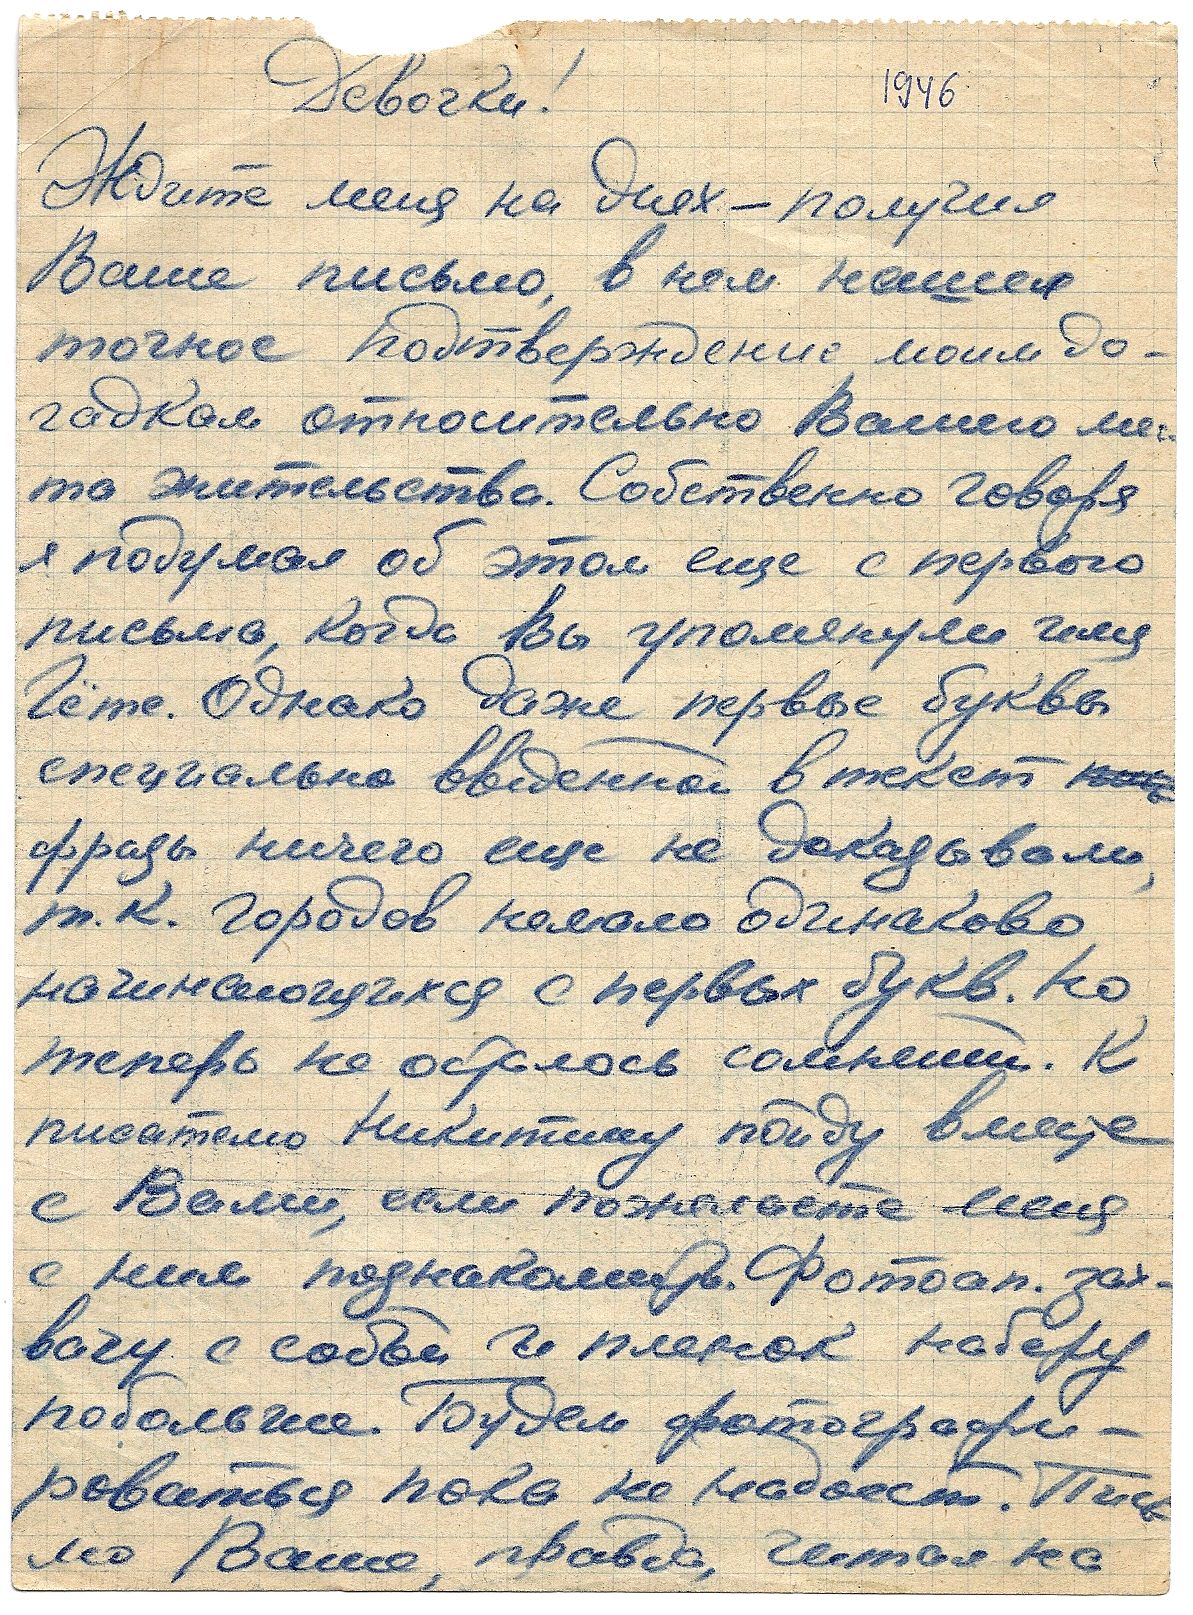 Девочки!
1946
Ждите меня на днях – получил
Ваше письмо, в нем нашел
точное подтверждение моим до-
гадкам относительно Вашего мес-
та жительства. Собственно говоря
я подумал об этом еще с первого
письма, когда Вы упомянули имя
Гёте. Однако даже первые буквы
специально введенной в текст
фразы ничего еще не доказывали,
т.к. городов немало одинаково
начинающихся с первых букв. Но
теперь не осталось сомнений. К
писателю Никитину пойду вместе
с Вами, если пожелаете меня
с ним познакомить. Фотоап. зах-
вачу с собой и пленок наберу
побольше. Будем фотографи-
роваться пока не надоест. Пись
мо Ваше, правда, читал на